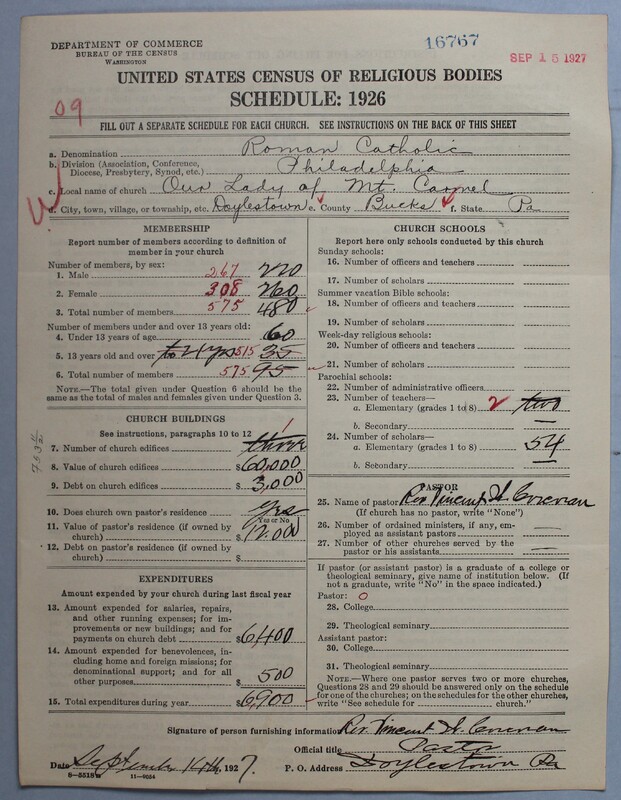 DEPARTMENT OF COMMERCE
BUREAU OF THE CENSUS
WASHINGTON
16767
SEP 15 1927
UNITED STATES CENSUS OF RELIGIOUS BODIES
SCHEDULE: 1926
09
FILL OUT A SEPARATE SCHEDULE FOR EACH CHURCH. SEE INSTRUCTIONS ON THE BACK OF THIS SHEET
a. Denomination Roman Catholic
b. Division (Association, Conference, Diocese, Presbytery, Synod, etc.) Philadelphia
c. Local name of church Our Lady of Mt. Carmel
d. City, town, village, or township, etc. Doylestown e. County Bucks f. State Pa
MEMBERSHIP
Report number of members according to definition of
member in your church
Number of members, by sex:
1. Male 267 220
2. Female 308 260
3. Total number of members 575 480
Number of members under and over 13 years old:
4. Under 13 years of age 60
5. 13 years old and over to 21 yrs 515 35
6. Total number of members 575 95
NOTE.—The total given under Question 6 should be the
same as the total of males and females given under Question 3.
CHURCH BUILDINGS
See instructions, paragraphs 10 to 12
7. Number of church edifices three 1
8. Value of church edifices $60,000
9. Debt on church edifices $3,000
10. Does church own pastor's residence yes
Yes or No
11. Value of pastor's residence (if owned by
church) $12.000
12. Debt on pastor's residence (if owned by
church) $
EXPENDITURES
Amount expended by your church during last fiscal year
13. Amount expended for salaries, repairs,
and other running expenses; for im-
provements or new buildings; and for
payments on church debt $6,400
14. Amount expended for benevolences, in-
cluding home and foreign missions; for
denominational support; and for all
other purposes $500
15. Total expenditures during year $6,900
CHURCH SCHOOLS
Report here only schools conducted by this church
Sunday schools:
16. Number of officers and teachers
17. Number of scholars
Summer vacation Bible schools:
18. Number of officers and teachers
19. Number of scholars
Week-day religious schools:
20. Number of officers and teachers
21. Number of scholars
Parochial schools:
22. Number of administrative officers
23. Number of teachers—
a. Elementary (grades 1 to 8) 2 two
b. Secondary —
24. Number of scholars—
a. Elementary (grades 1 to 8) 54
b. Secondary —
PASTOR
25. Name of pastor Rev Vincent A. Corcoran
(If church has no pastor, write "None")
26. Number of ordained ministers, if any, em-
ployed as assistant pastors —
27. Number of other churches served by the
pastor or his assistants —
If pastor (or assistant pastor) is a graduate of a college or
theological seminary, give name of institution below. (If
not a graduate, write "No" in the space indicated.)
Pastor: 0
28. College
29. Theological seminary
Assistant pastor:
30. College
31. Theological seminary
NOTE.—Where one pastor serves two or more churches,
Questions 28 and 29 should be answered only on the schedule
for one of the churches; on the schedules for the other churches,
write "See schedule for church."
Signature of person furnishing information Rev. Vincent A. Corcoran
Official title Pastor
Date September 14th, 1927. P. O. Address Doylestown Pa
8—5518 11—9034